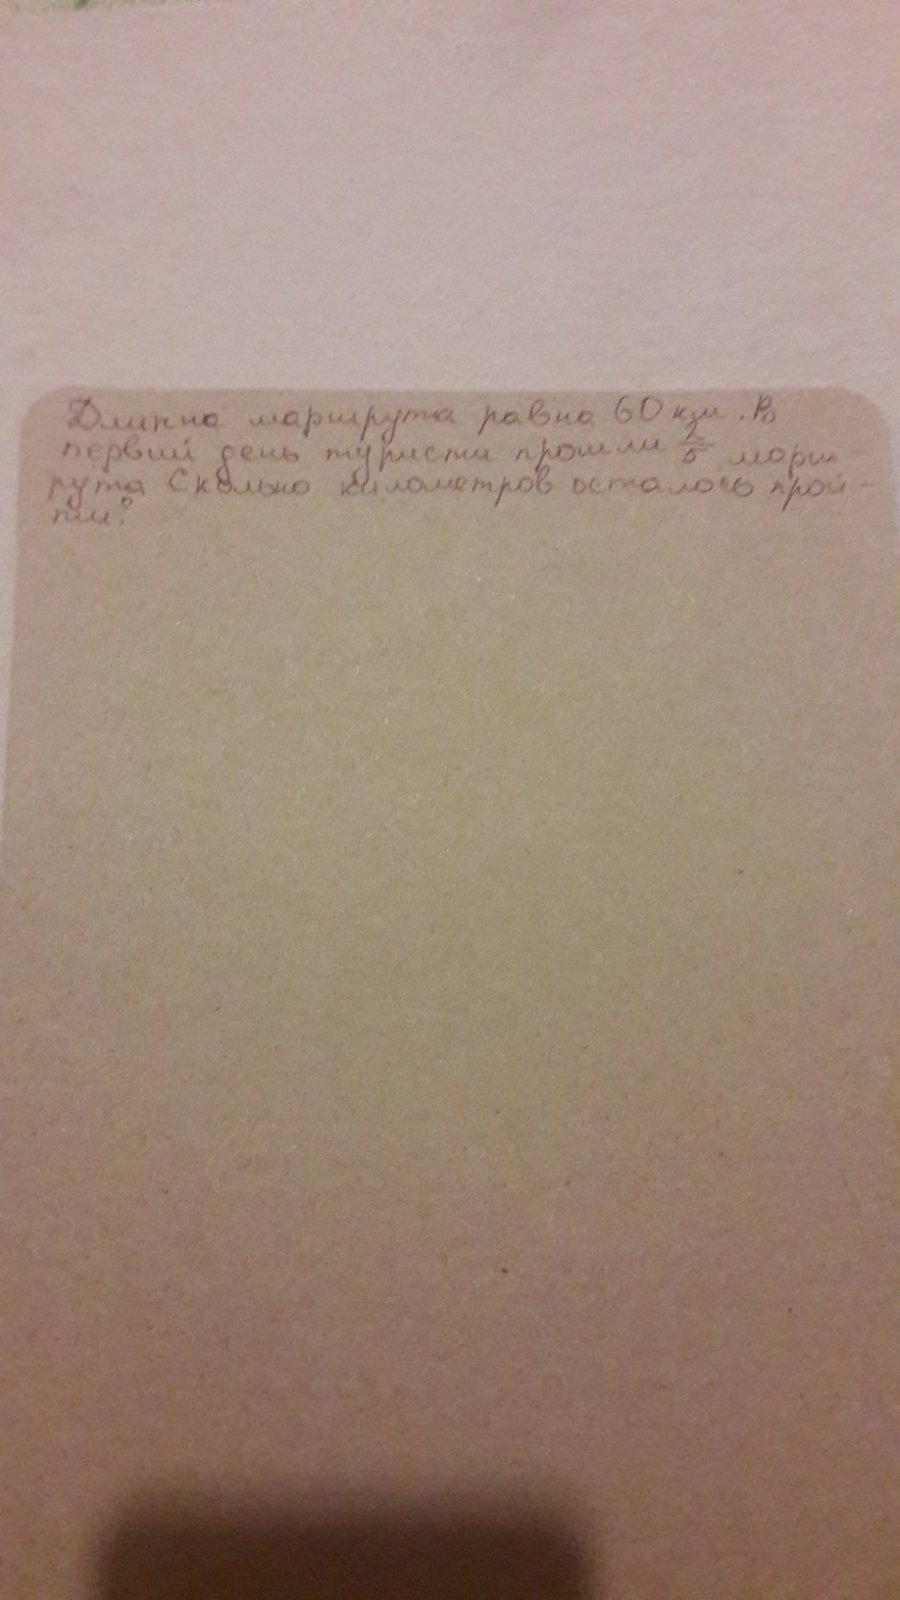 Длинна маршрута равна 60 км. В
первий день туристи прошли 2/5 марш
рута Сколько километров осталось прой-
ти?